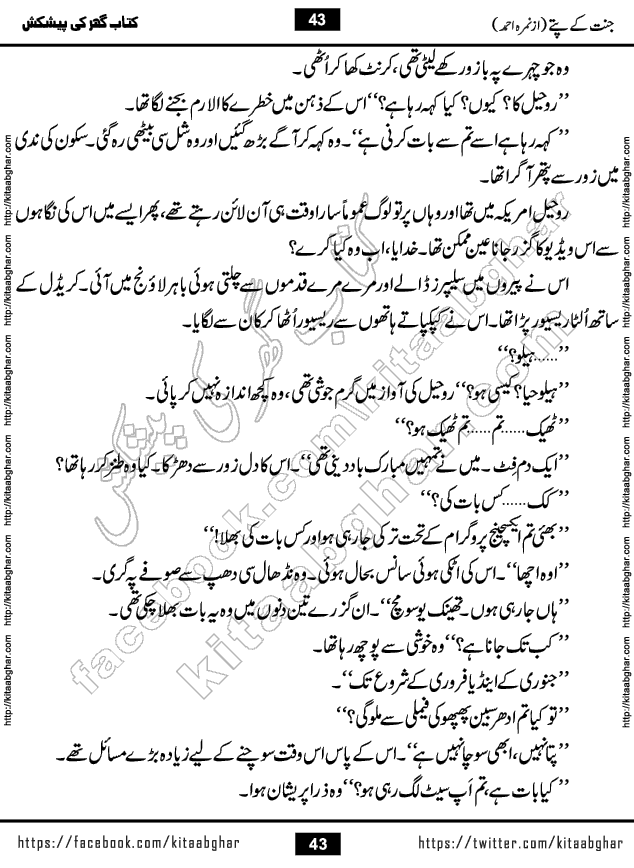 جنت کے پتے (از نمرہ احمد) 43 کتاب گھر کی پیشکش
وہ جو چہرے پہ بازو رکھے لیٹی تھی، کرنٹ کھا کر اُٹھی۔
’’روحیل کا؟ کیوں؟ کیا کہہ رہا ہے؟‘‘ اس کے ذہن میں خطرے کا الارم بجنے لگا تھا۔
’’کہہ رہا ہے اسے تم سے بات کرنی ہے‘‘۔ وہ کہہ کر آگے بڑھ گئیں اور وہ شل سی بیٹھی رہ گئی۔ سکون کی ندی
میں زور سے پتھر آ گرا تھا۔
روحیل امریکہ میں تھا اور وہاں پر تو لوگ عموماً سارا وقت ہی آن لائن رہتے تھے، پھر ایسے میں اس کی نگاہوں
سے اس ویڈیو کا گزر جانا عین ممکن تھا۔ خدایا، اب وہ کیا کرے؟
اس نے پیروں میں سلیپرز ڈالے اور مرے مرے قدموں سے چلتی ہوئی باہر لاؤنج میں آئی۔ کریڈل کے
ساتھ اُلٹا ریسیور پڑا تھا۔ اس نے کپکپاتے ہاتھوں سے ریسیور اُٹھا کر کان سے لگایا۔
’’……ہیلو؟‘‘
’’ہیلو حیا؟ کیسی ہو؟‘‘ روحیل کی آواز میں گرم جوشی تھی، وہ کچھ اندازہ نہیں کر پائی۔
’’ٹھیک……تم……تم ٹھیک ہو؟‘‘
’’ایک دم فٹ۔ میں نے تمہیں مبارک باد دینی تھی‘‘۔ اس کا دل زور سے دھڑکا۔ کیا وہ طنز کر رہا تھا؟
’’کک……کس بات کی؟‘‘
’’بھئی تم ایکسچینج پروگرام کے تحت ترکی جا رہی ہو اور کس بات کی بھلا!‘‘
’’اوہ اچھا‘‘۔ اس کی اٹکی ہوئی سانس بحال ہوئی۔ وہ نڈھال سی دھپ سے صوفے پہ گری۔
’’ہاں جا رہی ہوں۔ تھینک یو سو مچ‘‘۔ ان گزرے تین دنوں میں وہ یہ بات بھلا چکی تھی۔
’’کب تک جانا ہے؟‘‘ وہ خوشی سے پوچھ رہا تھا۔
’’جنوری کے اینڈ یا فروری کے شروع تک‘‘۔
’’تو کیا تم ادھر سبین پھپھو کی فیملی سے ملو گی؟‘‘
’’پتا نہیں، ابھی سوچا نہیں ہے‘‘۔ اس کے پاس اس وقت سوچنے کے لیے زیادہ بڑے مسائل تھے۔
’’کیا بات ہے، تم اَپ سیٹ لگ رہی ہو؟‘‘ وہ ذرا پریشان ہوا۔
https://facebook.com/kitaabghar 43 https://twitter.com/kitaabghar
http://kitaabghar.com http://kitaabghar.com http://kitaabghar.com http://kitaabghar.com http://kitaabghar.com http://kitaabghar.com
http://kitaabghar.com http://kitaabghar.com http://kitaabghar.com http://kitaabghar.com http://kitaabghar.com http://kitaabghar.com
کتاب گھر کی پیشکش
kitaabghar.com
facebook.com/kitaabghar